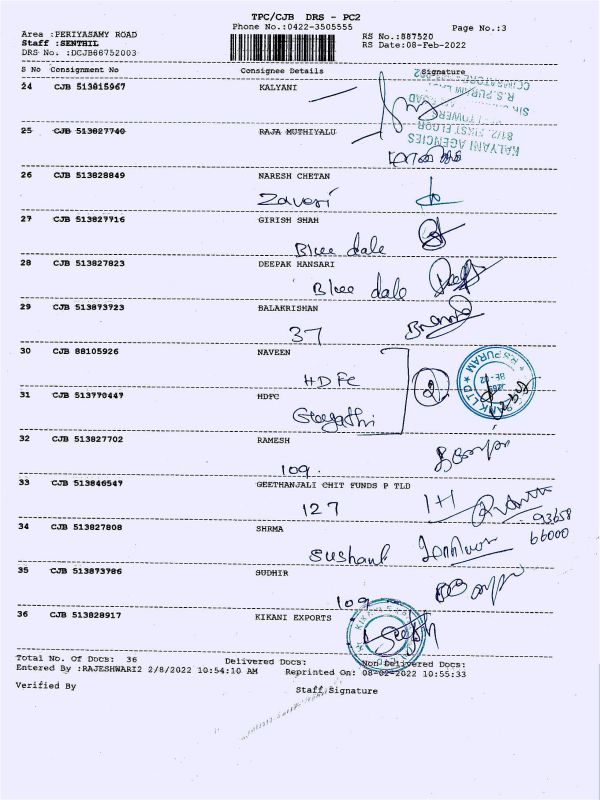 TPC/CJB DRS - PC2
Phone No.:0422-3505555 Page No.:3
Area :PERIYASAMY ROAD RS No.:887520
Staff :SENTHIL RS Date:08-Feb-2022
DRS No. :DCJB66752003
S No Consignment No Consignee Details Signature
24 CJB 513815967 KALYANI
KALYANI AGENCIES
81/2, FIRST FLOOR
R.S.PURAM
25 CJB 513827740 RAJA MUTHIYALU
26 CJB 513828849 NARESH CHETAN
Zaveri
27 CJB 513827716 GIRISH SHAH
Blue dale
28 CJB 513827823 DEEPAK HANSARI
Blue dale
29 CJB 513873723 BALAKRISHAN
37
30 CJB 88105926 NAVEEN
HDFC
2
R.S.PURAM
31 CJB 513770447 HDFC
Gayathri
32 CJB 513827702 RAMESH
109.
33 CJB 513846547 GEETHANJALI CHIT FUNDS P TLD
127
93658
66000
34 CJB 513827808 SHRMA
Sushant
35 CJB 513873786 SUDHIR
109
36 CJB 513828917 KIKANI EXPORTS
Total No. Of Docs: 36 Delivered Docs: Non Delivered Docs:
Entered By :RAJESHWARI2 2/8/2022 10:54:10 AM Reprinted On: 08-02-2022 10:55:33
Verified By Staff Signature